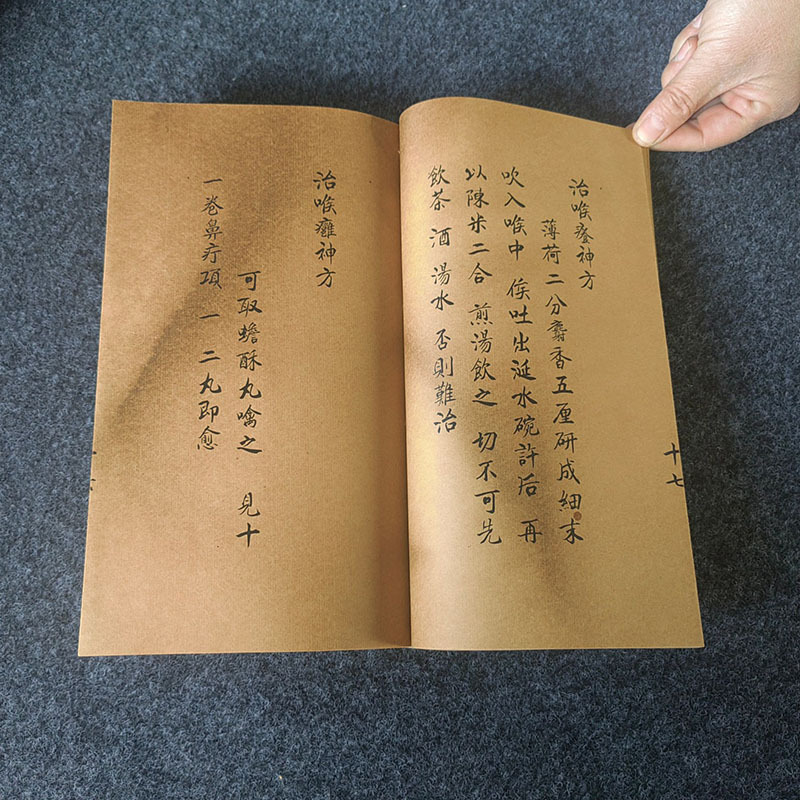 治喉瘡神方
薄荷二分麝香五厘研成細末
吹入喉中 俟吐出涎水碗許后 再
以陳米二合 煎湯飲之 切不可先
飲茶 酒 湯水 否則難治
十七
治喉癰神方
可取蟾酥丸噙之 見十
一卷鼻疔項 一 二丸即愈